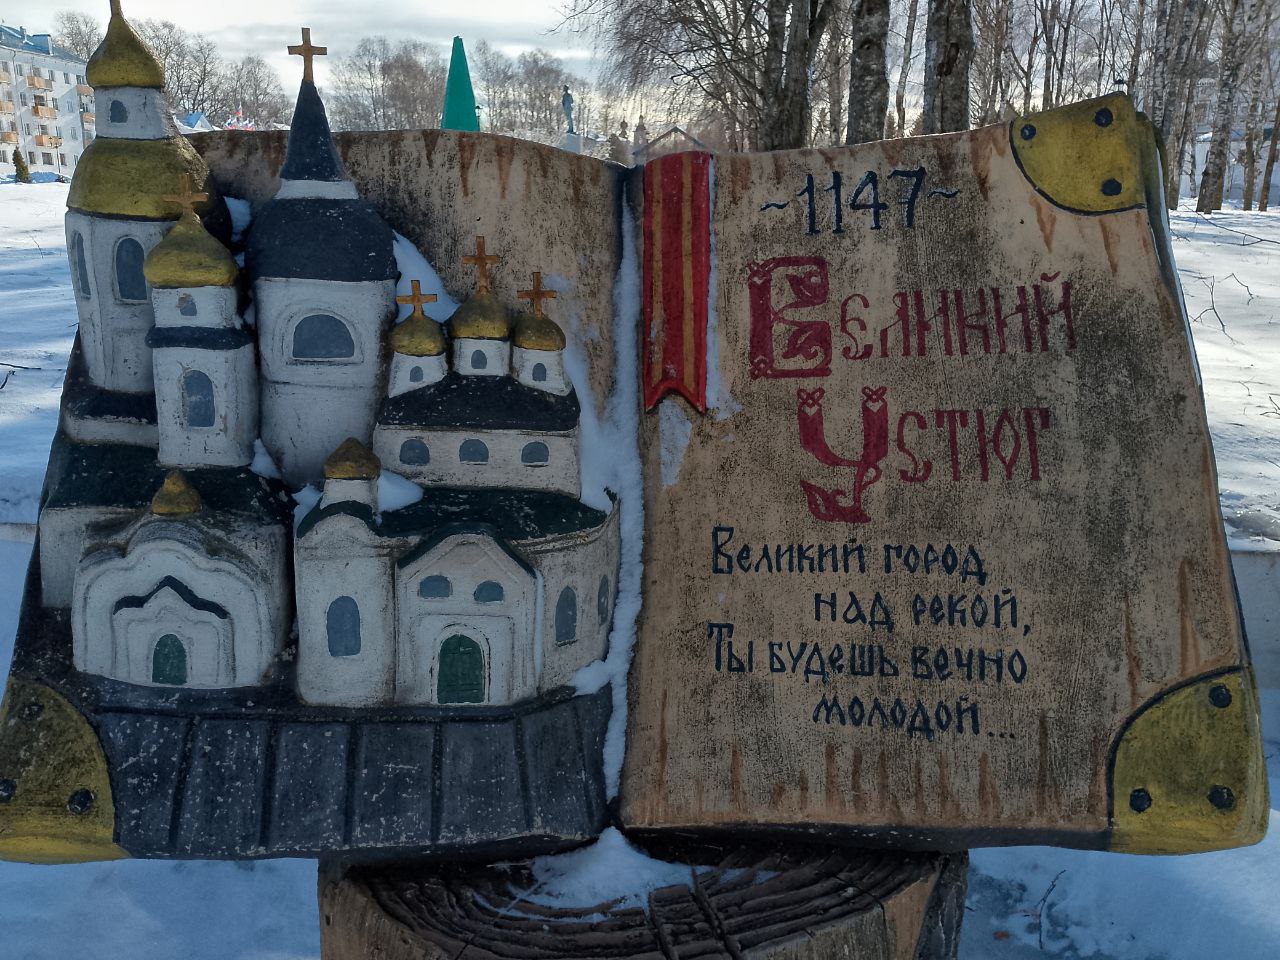 ~1147~
Великий
Устюг
Великий город
над рекой,
Ты будешь вечно
молодой...